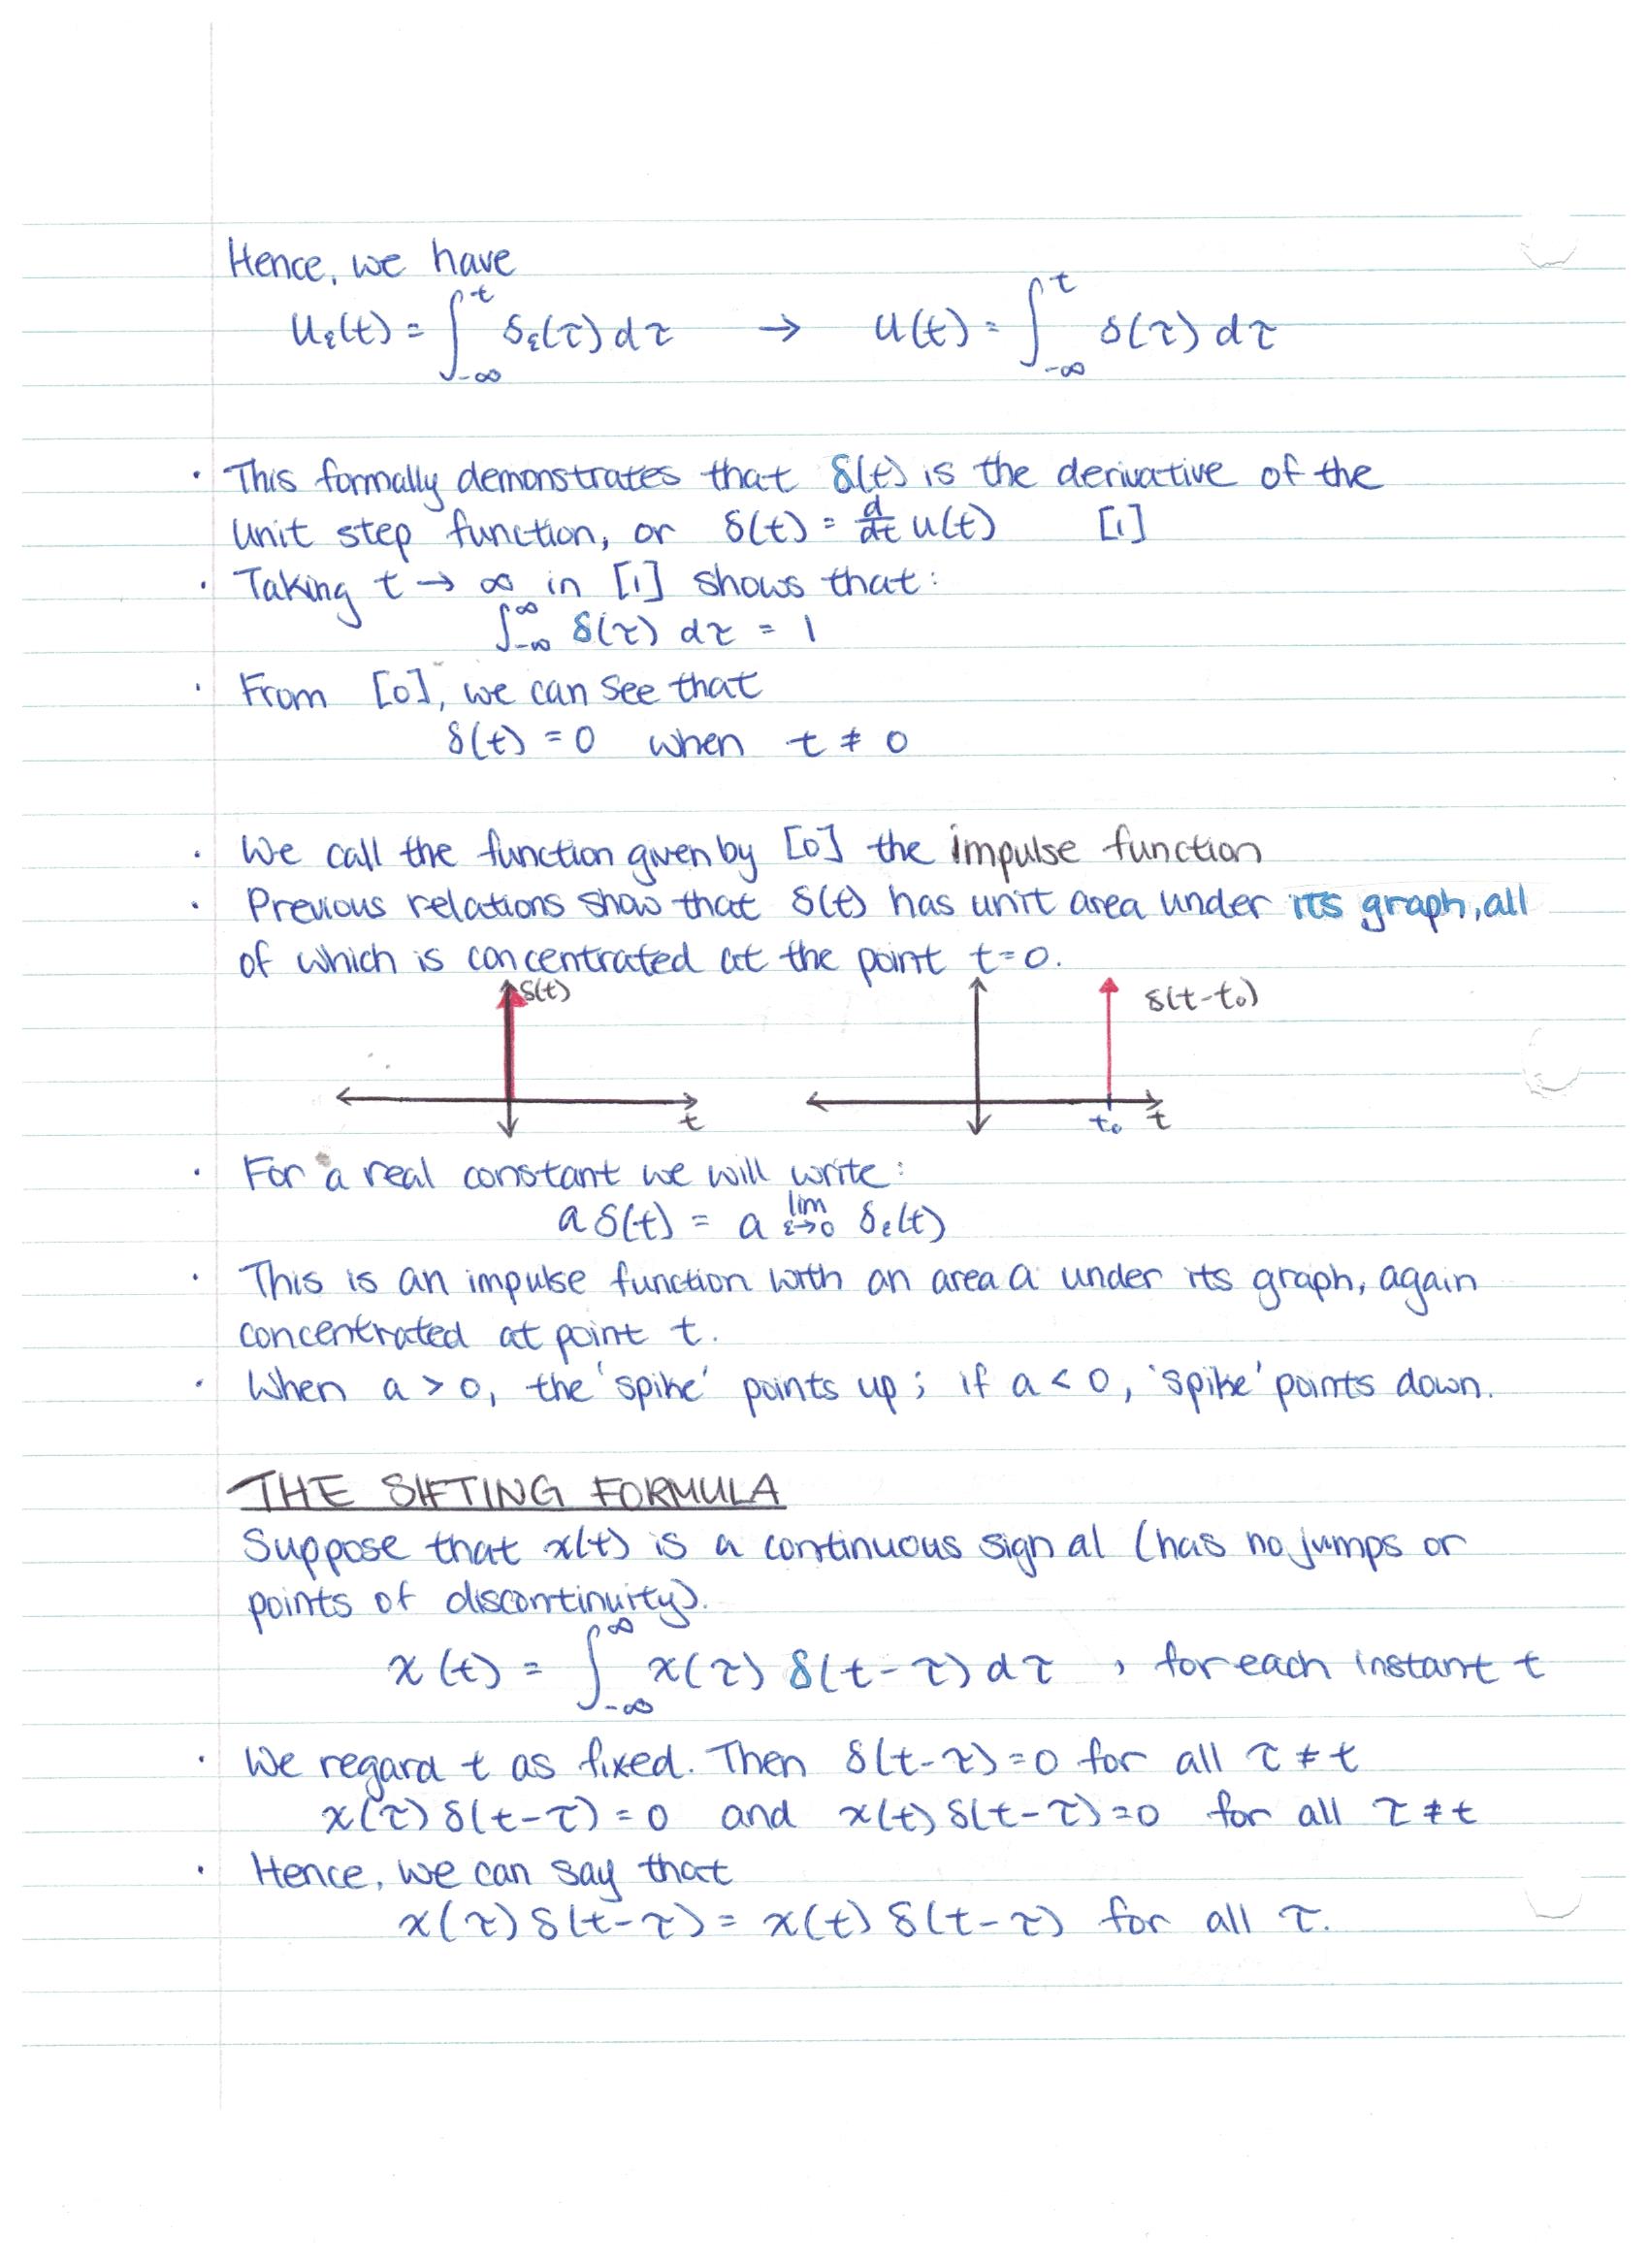 Hence, we have
uε(t) = ∫_{-∞}^{t} δε(τ) dτ → u(t) = ∫_{-∞}^{t} δ(τ) dτ
· This formally demonstrates that δ(t) is the derivative of the
unit step function, or δ(t) = d/dt u(t) [1]
· Taking t → ∞ in [1] shows that:
∫_{-∞}^{∞} δ(τ) dτ = 1
· From [0], we can see that
δ(t) = 0 when t ≠ 0
· We call the function given by [0] the impulse function
· Previous relations show that δ(t) has unit area under its graph, all
of which is concentrated at the point t=0.
δ(t) δ(t-t₀)
t t₀ t
· For a real constant we will write:
a δ(t) = a lim_{ε→0} δε(t)
· This is an impulse function with an area a under its graph, again
concentrated at point t.
· When a > 0, the 'spike' points up; if a < 0, 'spike' points down.
THE SIFTING FORMULA
Suppose that x(t) is a continuous signal (has no jumps or
points of discontinuity).
x(t) = ∫_{-∞}^{∞} x(τ) δ(t-τ) dτ , for each instant t
· We regard t as fixed. Then δ(t-τ)=0 for all τ ≠ t
x(τ) δ(t-τ) = 0 and x(t) δ(t-τ) = 0 for all τ ≠ t
· Hence, we can say that
x(τ) δ(t-τ) = x(t) δ(t-τ) for all τ.